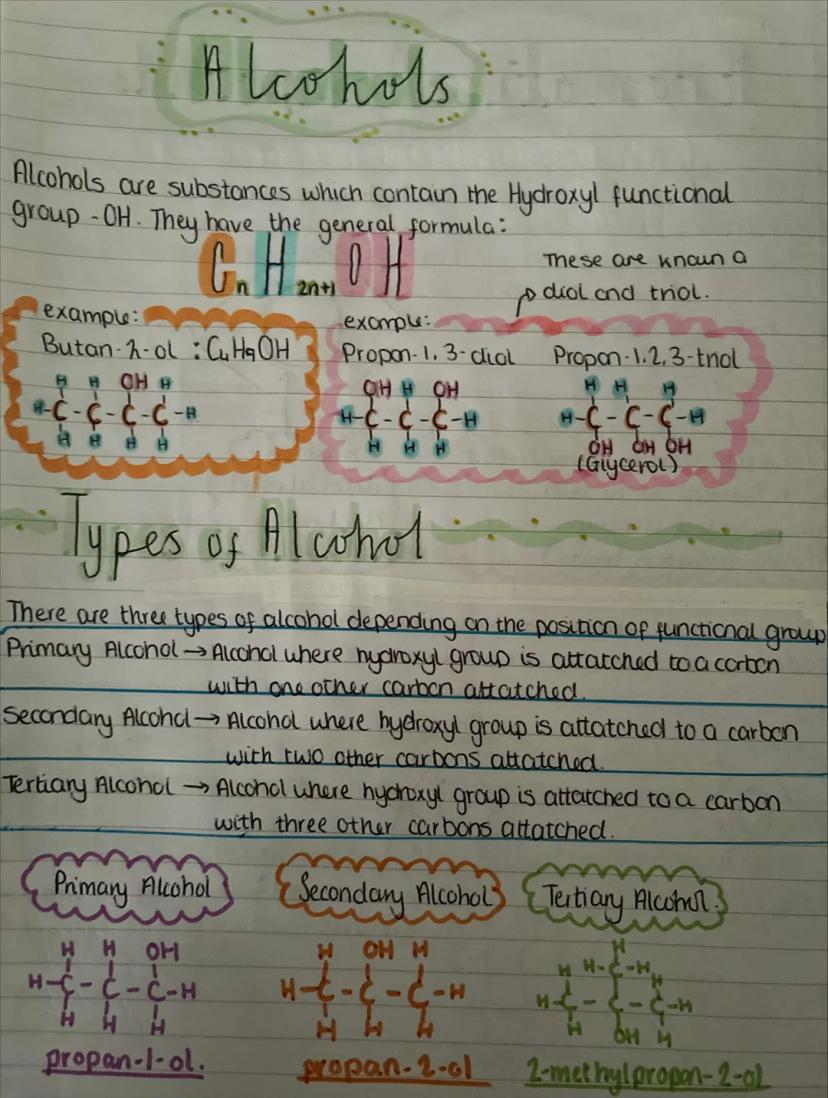 Alcohols
Alcohols are substances which contain the Hydroxyl functional
group -OH. They have the general formula:
CnH2n+1OH
These are known a
diol and triol.
example:
Butan-2-ol : C4H9OH
H H OH H
H-C-C-C-C-H
H H H H
example:
Propan-1,3-diol
OH H OH
H-C-C-C-H
H H H
Propan-1,2,3-triol
H H H
H-C-C-C-H
OH OH OH
(Glycerol)
Types of Alcohol
There are three types of alcohol depending on the position of functional group
Primary Alcohol → Alcohol where hydroxyl group is attatched to a carbon
with one other carbon attatched.
Secondary Alcohol → Alcohol where hydroxyl group is attatched to a carbon
with two other carbons attatched.
Tertiary Alcohol → Alcohol where hydroxyl group is attatched to a carbon
with three other carbons attatched.
Primary Alcohol
H H OH
H-C-C-C-H
H H H
propan-1-ol.
Secondary Alcohol
H OH H
H-C-C-C-H
H H H
propan-2-ol
Tertiary Alcohol.
H
H-C-H
H H
H-C-C-C-H
H OH H
2-methylpropan-2-ol